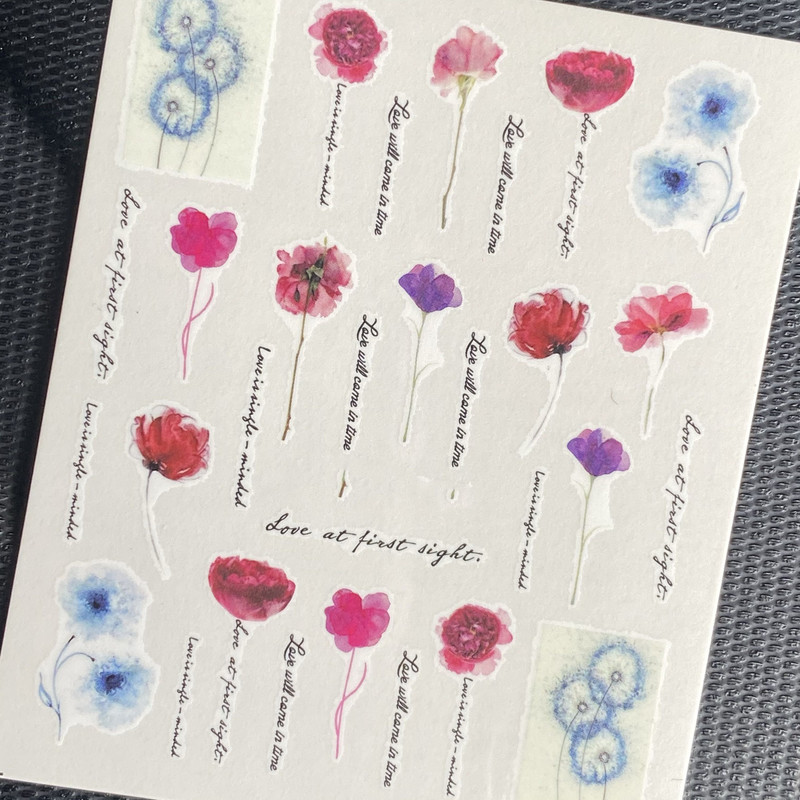 Love is single-minded
Love will come in time
Love will come in time
Love at first sight.
Love at first sight.
Love is single-minded
Love will come in time
Love will come in time
Love is single-minded
Love is single-minded
Love at first sight.
Love at first sight.
Love is single-minded
Love at first sight.
Love will come in time
Love will come in time
Love is single-minded